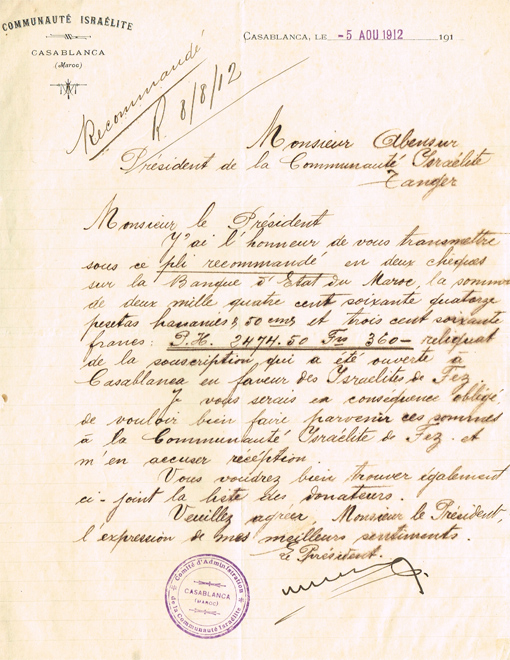 COMMUNAUTÉ ISRAÉLITE
CASABLANCA
(Maroc)
CASABLANCA, LE -5 AOU 1912 191
Recommandé
R 8/8/12
Monsieur Abensur
Président de la Communauté Israélite
Tanger
Monsieur le Président
J'ai l'honneur de vous transmettre
sous ce pli recommandé en deux chèques
sur la Banque d'Etat du Maroc, la somme
de deux mille quatre cent soixante quatorze
pesetas hassanies, 50 cmes et trois cent soixante
francs: P.H. 2474.50 Frs 360 - reliquat
de la souscription qui a été ouverte à
Casablanca en faveur des Israélites de Fez
Je vous serais en conséquence obligé
de vouloir bien faire parvenir ces sommes
à la Communauté Israélite de Fez et
m'en accuser réception.
Vous voudrez bien trouver également
ci-joint la liste des donateurs.
Veuillez agréer, Monsieur le Président,
l'expression de mes meilleurs sentiments.
Le Président.
Comité d'Administration
CASABLANCA
(MAROC)
de la Communauté Israélite